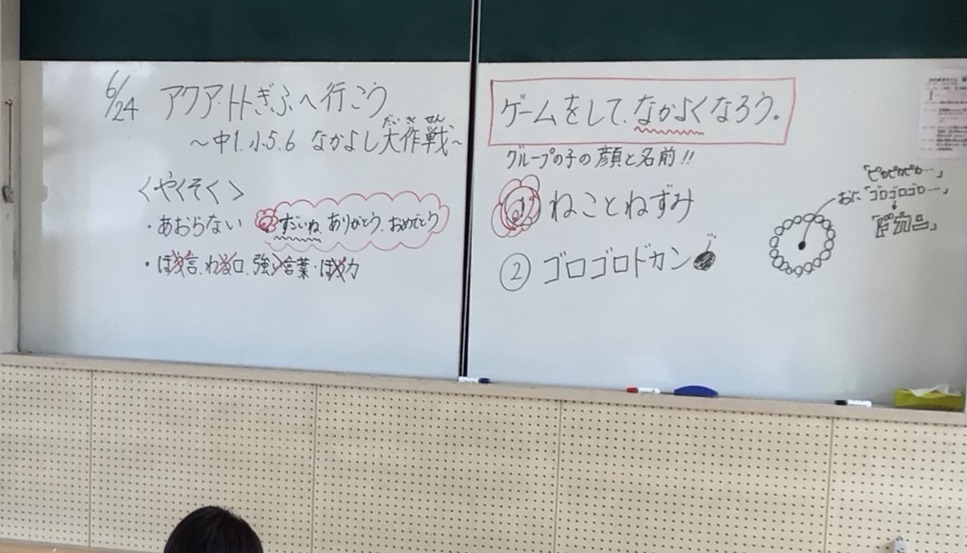 6/24 アクア・トトぎふへ行こう
～中1.小5.6 なかよし大作戦～
だい さく せん
〈やくそく〉
・あおらない すごいね ありがとう おめでとう
・ぼう言、わる口、強い言葉・ぼう力
ゲームをして、なかよくなろう。
グループの子の顔と名前!!
① ねことねずみ
② ゴロゴロドカン
おに「ゴロゴロゴロ…」
「ドカーン」